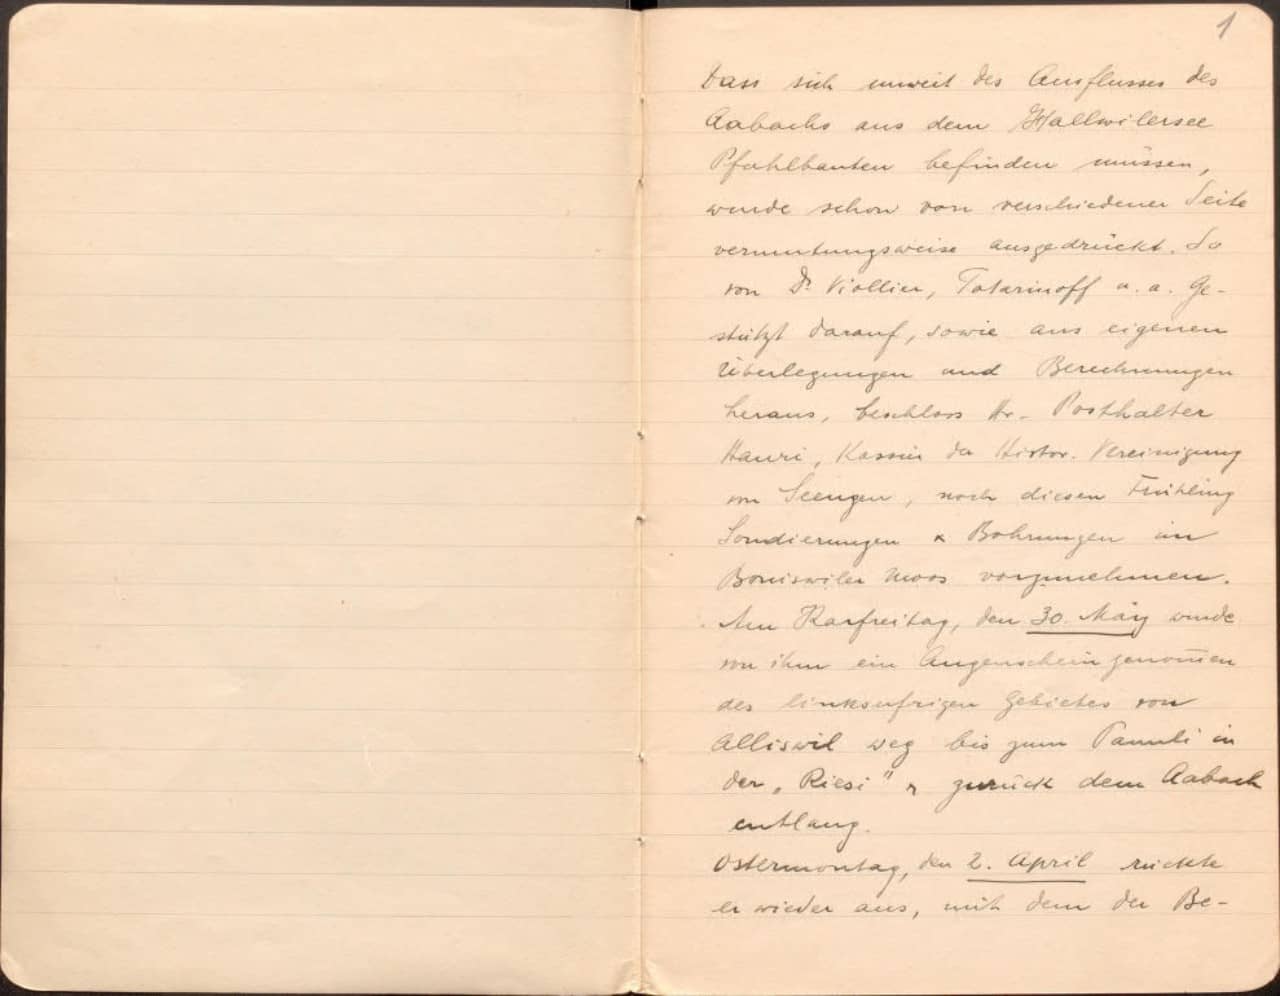 1
Dass sich unweit des Ausflusses des
Aabachs aus dem Hallwilersee
Pfahlbauten befinden müssen,
wurde schon von verschiedener Seite
vermutungsweise ausgedrückt. So
von Dr. Viollier, Tatarinoff u. a. Ge-
stützt darauf, sowie aus eigenen
Überlegungen und Berechnungen
heraus, beschloss Hr. Posthalter
Hauri, Kassier der Histor. Vereinigung
von Seengen, noch diesen Frühling
Sondierungen & Bohrungen im
Boniswiler Moos vorzunehmen.
Am Karfreitag, den 30. März wurde
von ihm ein Augenschein genom̅en
des linksufrigen Gebietes von
Alliswil weg bis zum in
der „Riesi" & zurück dem Aabach
entlang.
Ostermontag, den 2. April rückte
er wieder aus, mit dem der Be-